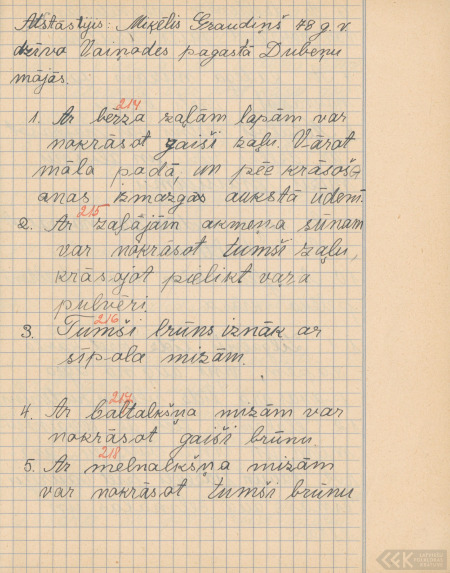 Atstāstījis: Miķēlis Graudiņš 78 g.v.
dzīvo Vaiņodes pagastā Dubeņu
mājās.
214
1. Ar bērza zaļām lapām var
nokrāsot gaiši zaļu. Vārot
māla podā, un pēc krāsoš-
anas izmazgās aukstā ūdenī.
215
2. Ar zaļajām akmeņa sūnam
var nokrāsot tumši zaļu,
krāsojot pielikt vaŗa
pulveri.
216
3. Tumši brūns iznāk ar
sīpola mizām.
217
4. Ar baltalkšņa mizām var
nokrāsot gaiši brūnu.
218
5. Ar melnalkšņa mizām
var nokrāsot tumši brūnu